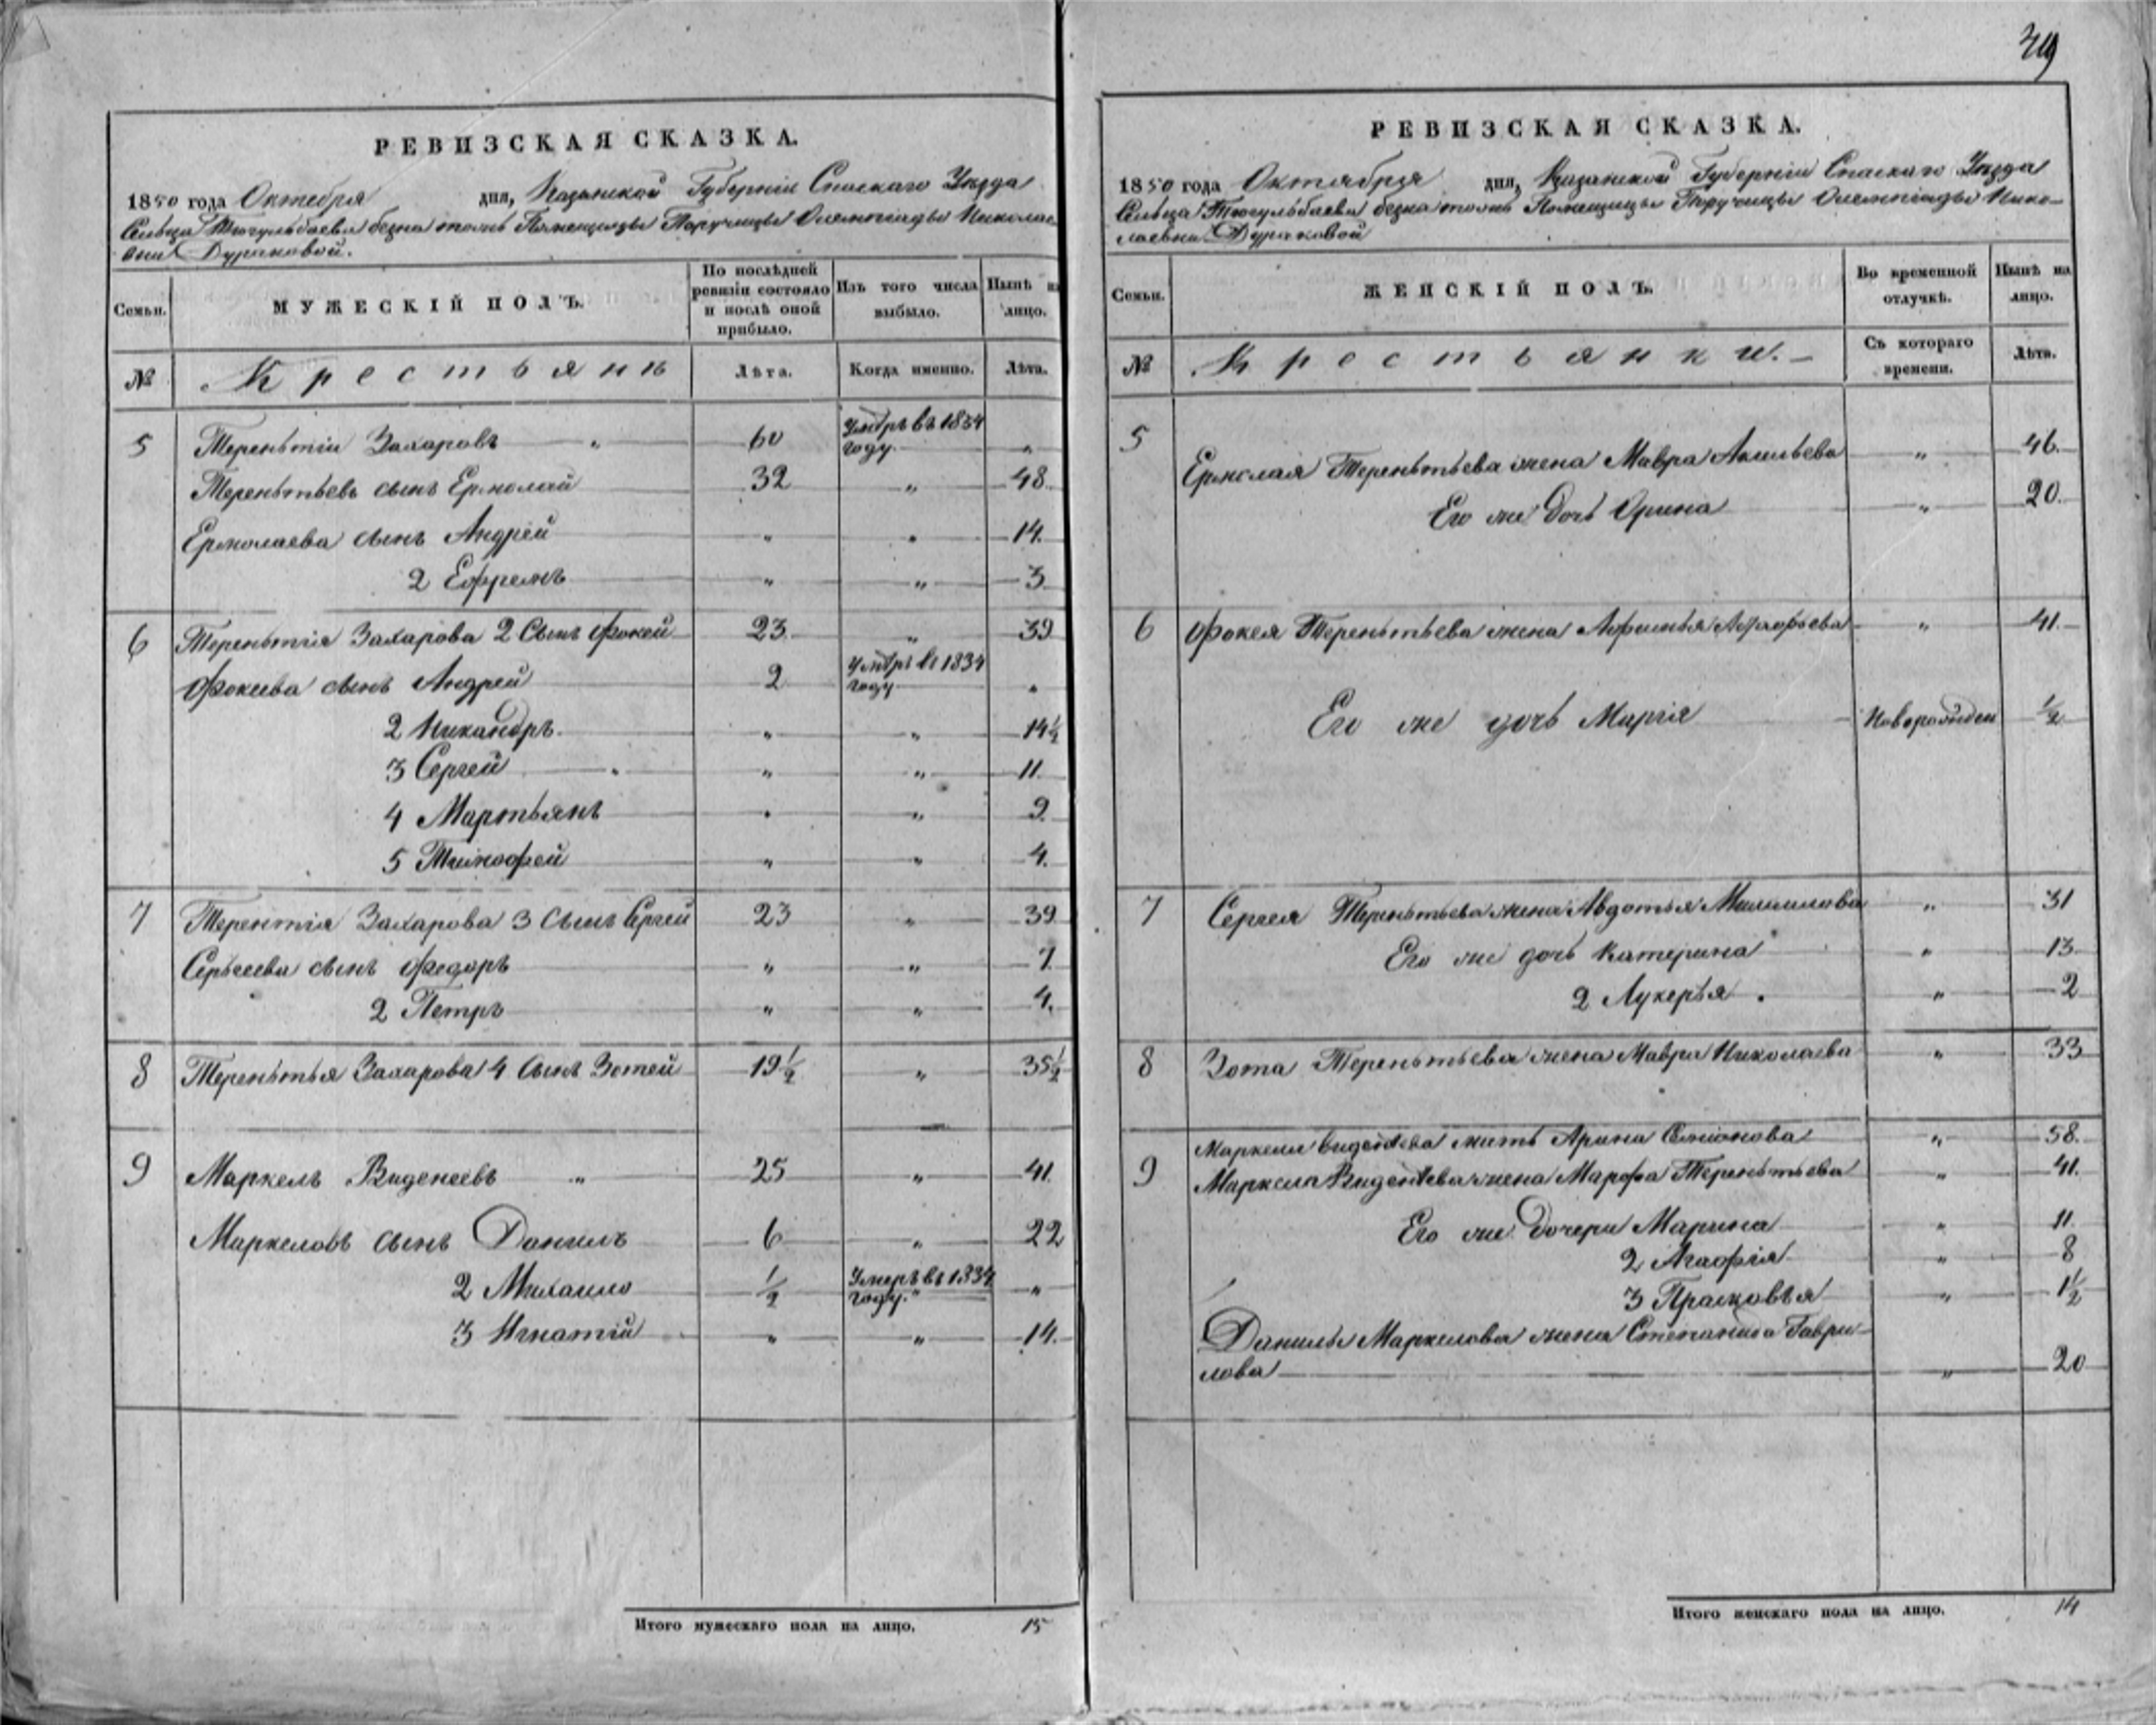 РЕВИЗСКАЯ СКАЗКА.
1850 года Октебря дня, Казанской Губерніи Спаскаго Уѣзда
Сельца Тюгульбаева безна тожъ Помещицы Поручицы Николае-
вни Дураковой.
Семьи.
МУЖЕСКІЙ ПОЛЪ.
По послѣдней ревизіи состояло и послѣ оной прибыло.
Изъ того числа выбыло.
Нынѣ на лицо.
№
Крестьянъ
Лѣта.
Когда именно.
Лѣта.
5 Тереньтіи Захаровъ " 60 Умѣръ въ 1834 году. "
Тереньтьевъ сынъ Ермолай 32 " 48
Ермолаева сынъ Андрей " " 14.
2 Ефремъ " " 3
6 Тереньтія Захарова 2 Сынъ Фокей 23. " 39
Фокеева сынъ Андрей 2 Умѣръ въ 1834 году "
2 Никандръ. " " 14½
3 Сергей " " 11.
4 Мартьянъ " " 9.
5 Тимофей " " 4.
7 Терентія Захарова 3 Сынъ Сргей 23 " 39
Серьгеева сынъ Федоръ " " 7
2 Петръ " " 4.
8 Тереньтья Захарова 4 Сынъ Зотей 19½ " 35½
9 Маркелъ Виденеевъ " 25 " 41.
Маркеловъ сынъ Данилъ 6 " 22
2 Михаило ½ Умеръ въ 1834 году. "
3 Игнатій " " 14.
Итого мужескаго пола на лицо. 15
РЕВИЗСКАЯ СКАЗКА.
1850 года Октября дня, Казанской Губерніи Спаскаго Уѣзда
Сельца Тюгульбаева безна тожъ Помещицы Поручицы Нико-
лаевни Дураковой
Семьи.
ЖЕНСКІЙ ПОЛЪ.
Во временной отлучкѣ.
Нынѣ на лицо.
№
Крестьянки. –
Съ котораго времени.
Лѣта.
5 Ермолая Тереньтьева жена Мавра " 46.
Его же дочь Орина " 20.
6 Фокея Тереньтьева жена " 41.
Его же дочь Марія Новорожден ½
7 Сергея Тереньтьева жена Авдотья " 31
Его же дочь Катерина " 13
2 Лукерья. " 2
8 Зота Тереньтьева жена Мавра Николаева " 33
Маркела мать Арина Семионова " 58.
9 Маркела жена Марфа Тереньтьева " 41.
Его же дочери Марина " 11.
2 Агафія " 8
3 Прасковья " 1½
Данилы Маркелова жена Степанида Гаври-
лова " 20
Итого женскаго пола на лицо. 14